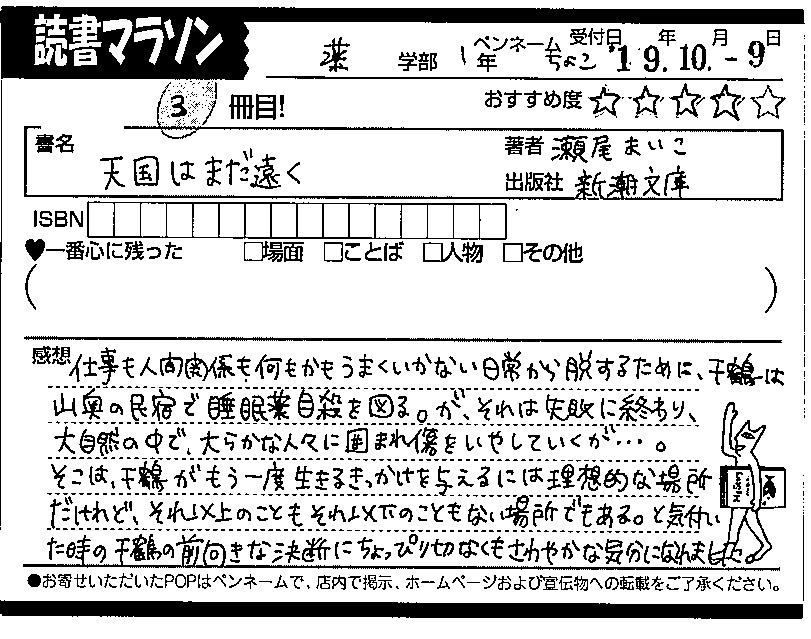 読書マラソン
薬 学部 1年 ペンネーム ちょこ 受付日 '19年10.月-9日
3 冊目! おすすめ度 ☆☆☆☆☆
書名 天国はまだ遠く
著者 瀬尾まいこ
出版社 新潮文庫
ISBN
♥一番心に残った □場面 □ことば □人物 □その他
( )
感想 仕事も人間関係も何もかもうまくいかない日常から脱するために、千鶴は
山奥の民宿で睡眠薬自殺を図る。が、それは失敗に終わり、
大自然の中で、大らかな人々に囲まれ傷をいやしていくが…。
そこは、千鶴がもう一度生きるきっかけを与えるには理想的な場所
だけれど、それ以上のこともそれ以下のこともない場所でもある。と気付い
た時の千鶴の前向きな決断にちょっぴり切なくもさわやかな気分になれました。
●お寄せいただいたPOPはペンネームで、店内で掲示、ホームページおよび宣伝物への転載をご了承ください。